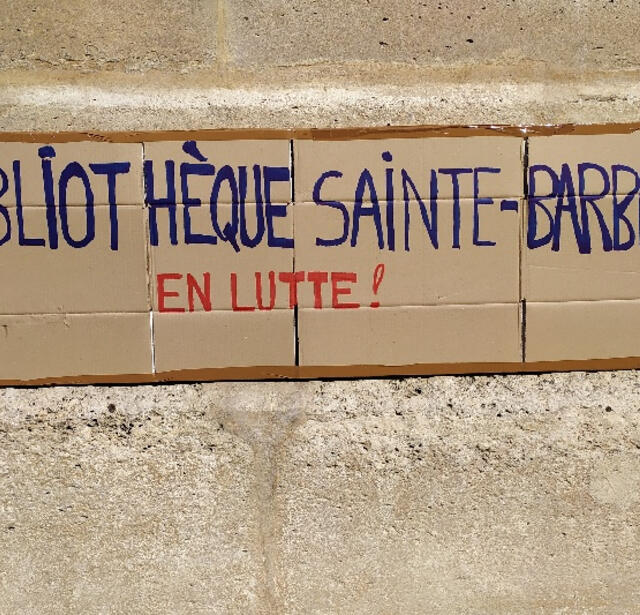 BLIOTHÈQUE SAINTE-BARB
EN LUTTE !